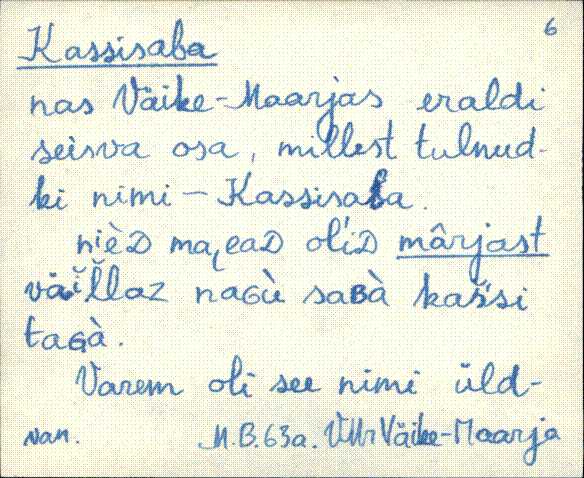 6
Kassisaba
nas Väike-Maarjas eraldi
seisva osa, millest tulnud-
ki nimi - Kassisaba.
nièD ma͔jeaD ol'iD mârjast
väĭl̆laz naGù saBà kas̀'si
taGà.
Varem oli see nimi üld-
van. M.B.63a. VMr Väike-Maarja